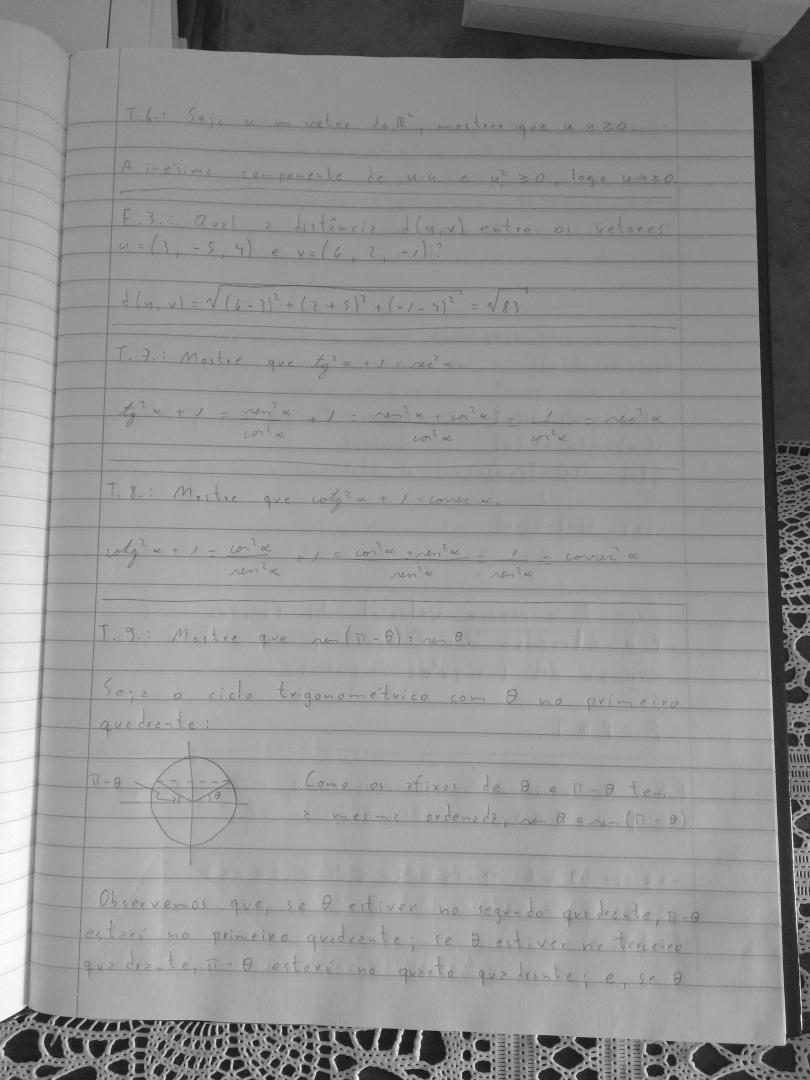 T.6.: Seja v um vetor do ℝⁿ, mostrar que u·u ≥ 0.
A i-ésima componente de u·u e uᵢ² ≥ 0, logo u·u ≥ 0.
E.3.: Qual a distância d(u,v) entre os vetores
u = (3, -5, 4) e v = (6, 2, -1)?
d(u,v) = √((6-3)² + (2+5)² + (-1-4)²) = √83
T.7.: Mostre que tg²α + 1 = sec²α.
tg²α + 1 = sen²α/cos²α + 1 = (sen²α + cos²α)/cos²α = 1/cos²α = sec²α
T.8.: Mostre que cotg²α + 1 = cossec α.
cotg²α + 1 = cos²α/sen²α + 1 = (cos²α + sen²α)/sen²α = 1/sen²α = cossec²α
T.9.: Mostre que sen(π-θ) = sen θ.
Seja o ciclo trigonométrico com θ no primeiro
quadrante:
π-θ
θ
Como os afixos de θ e π-θ tem
a mesma ordenada, sen θ = sen(π-θ)
Observemos que, se θ estiver no segundo quadrante, π-θ
estará no primeiro quadrante; se θ estiver no terceiro
quadrante, π-θ estará no quarto quadrante; e, se θ